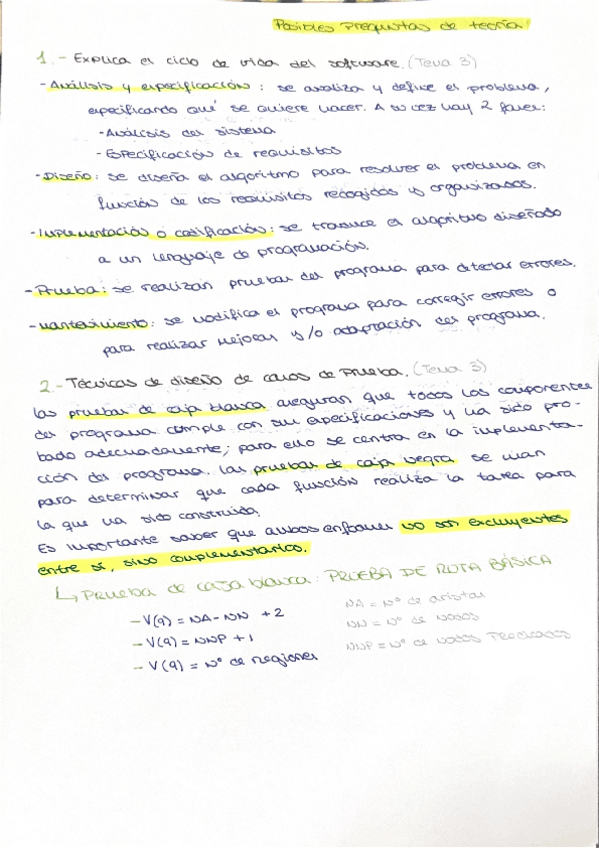 Posibles preguntas de teoría:
1.- Explica el ciclo de vida del software. (Tema 3)
- Análisis y especificación: se analiza y define el problema,
especificando qué se quiere hacer. A su vez hay 2 fases:
- Análisis del sistema
- Especificación de requisitos
- Diseño: se diseña el algoritmo para resolver el problema en
función de los requisitos recogidos y organizados.
- Implementación o codificación: se traduce el algoritmo diseñado
a un lenguaje de programación.
- Prueba: se realizan pruebas del programa para detectar errores.
- Mantenimiento: se modifica el programa para corregir errores o
para realizar mejoras y/o adaptación del programa.
2.- Técnicas de diseño de casos de prueba. (Tema 3)
Las pruebas de caja blanca aseguran que todos los componentes
del programa cumple con sus especificaciones y ha sido pro-
bado adecuadamente; para ello se centra en la implementa-
ción del programa. Las pruebas de caja negra se usan
para determinar que cada función realiza la tarea para
la que ha sido construida.
Es importante saber que ambos enfoques no son excluyentes
entre sí, sino complementarios.
↳ Prueba de caja blanca: PRUEBA DE RUTA BÁSICA
- V(g) = NA - NN + 2
NA = Nº de aristas
- V(g) = NNP + 1
NN = Nº de nodos
- V(g) = Nº de regiones
NNP = Nº de nodos predicados